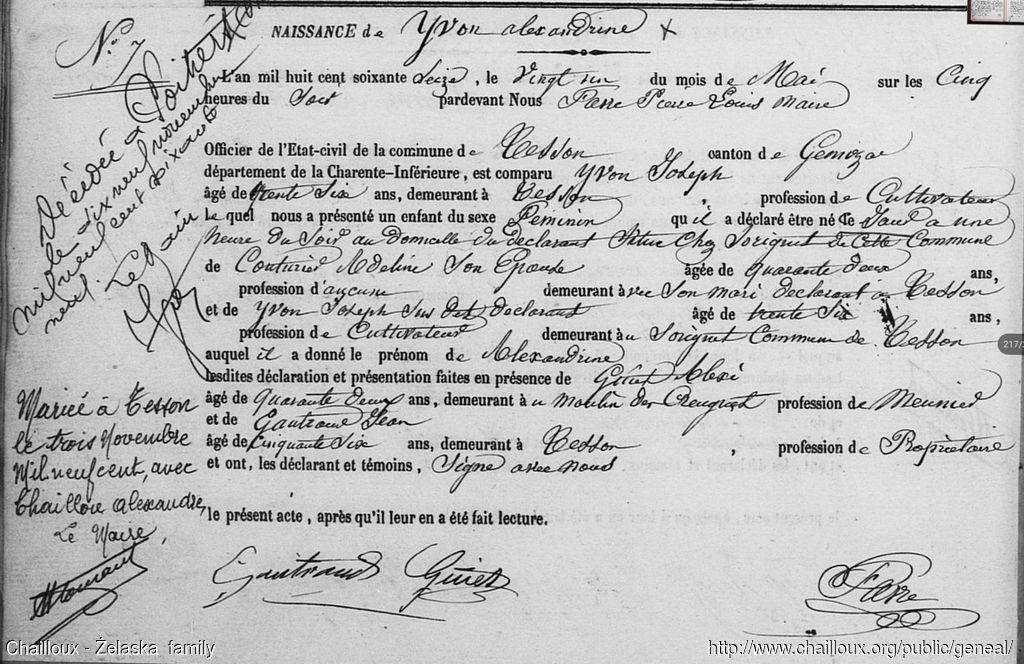 NAISSANCE de Yvon alexandrine x
L'an mil huit cent soixante Seize, le Vingt un du mois de Mai sur les Cinq
heures du Soir pardevant Nous Farre Pierre Louis Maire
Officier de l'Etat-civil de la commune de Tesson canton de Gemozac
département de la Charente-Inférieure, est comparu Yvon Joseph
âgé de trente Six ans, demeurant à Tesson, profession de Cultivateur
le quel nous a présenté un enfant du sexe Féminin qu il a déclaré être né Ce Jour a une
heure du Soir au domicille du declarant Situe Chez Sorignet de Cette Commune
de Couturier Adeline Son Epouse âgée de quarante deux ans,
profession d'aucune demeurant avec Son mari declarant a Tesson
et de Yvon Joseph Sus dit declarant âgé de trente Six ans,
profession de Cultivateur demeurant à Sorignet Commune de Tesson
auquel il a donné le prénom de Alexandrine
lesdites déclaration et présentation faites en présence de Guiet Alexi
âgé de quarante deux ans, demeurant à moulin des profession de Meunier
et de Gautraud Jean
âgé de cinquante Six ans, demeurant à Tesson, profession de Propriétaire
et ont, les déclarant et témoins, Signé avec nous
le présent acte, après qu'il leur en a été fait lecture.
Gautraud Guiet Farre
Décédée à Poitiers
le dix neuf novembre
mil neuf cent soixante
neuf.
Mariée à Tesson
le trois Novembre
Mil neuf cent, avec
Chailloux alexandre,
Le Maire,
217/
Chailloux - Żelaska family
http://www.chailloux.org/public/geneal/